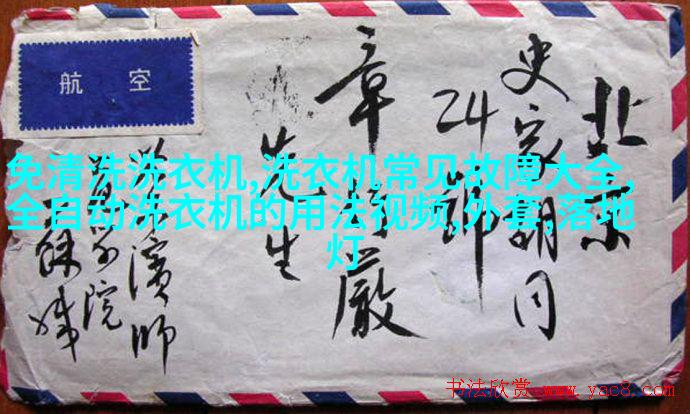 航空
北京
史家胡同
24
章 嚴
先生
濱師
院
免清洗洗衣机,洗衣机常见故障大全,
全自动洗衣机的用法视频,外套,落地
灯
书法欣赏 www.yac8.com